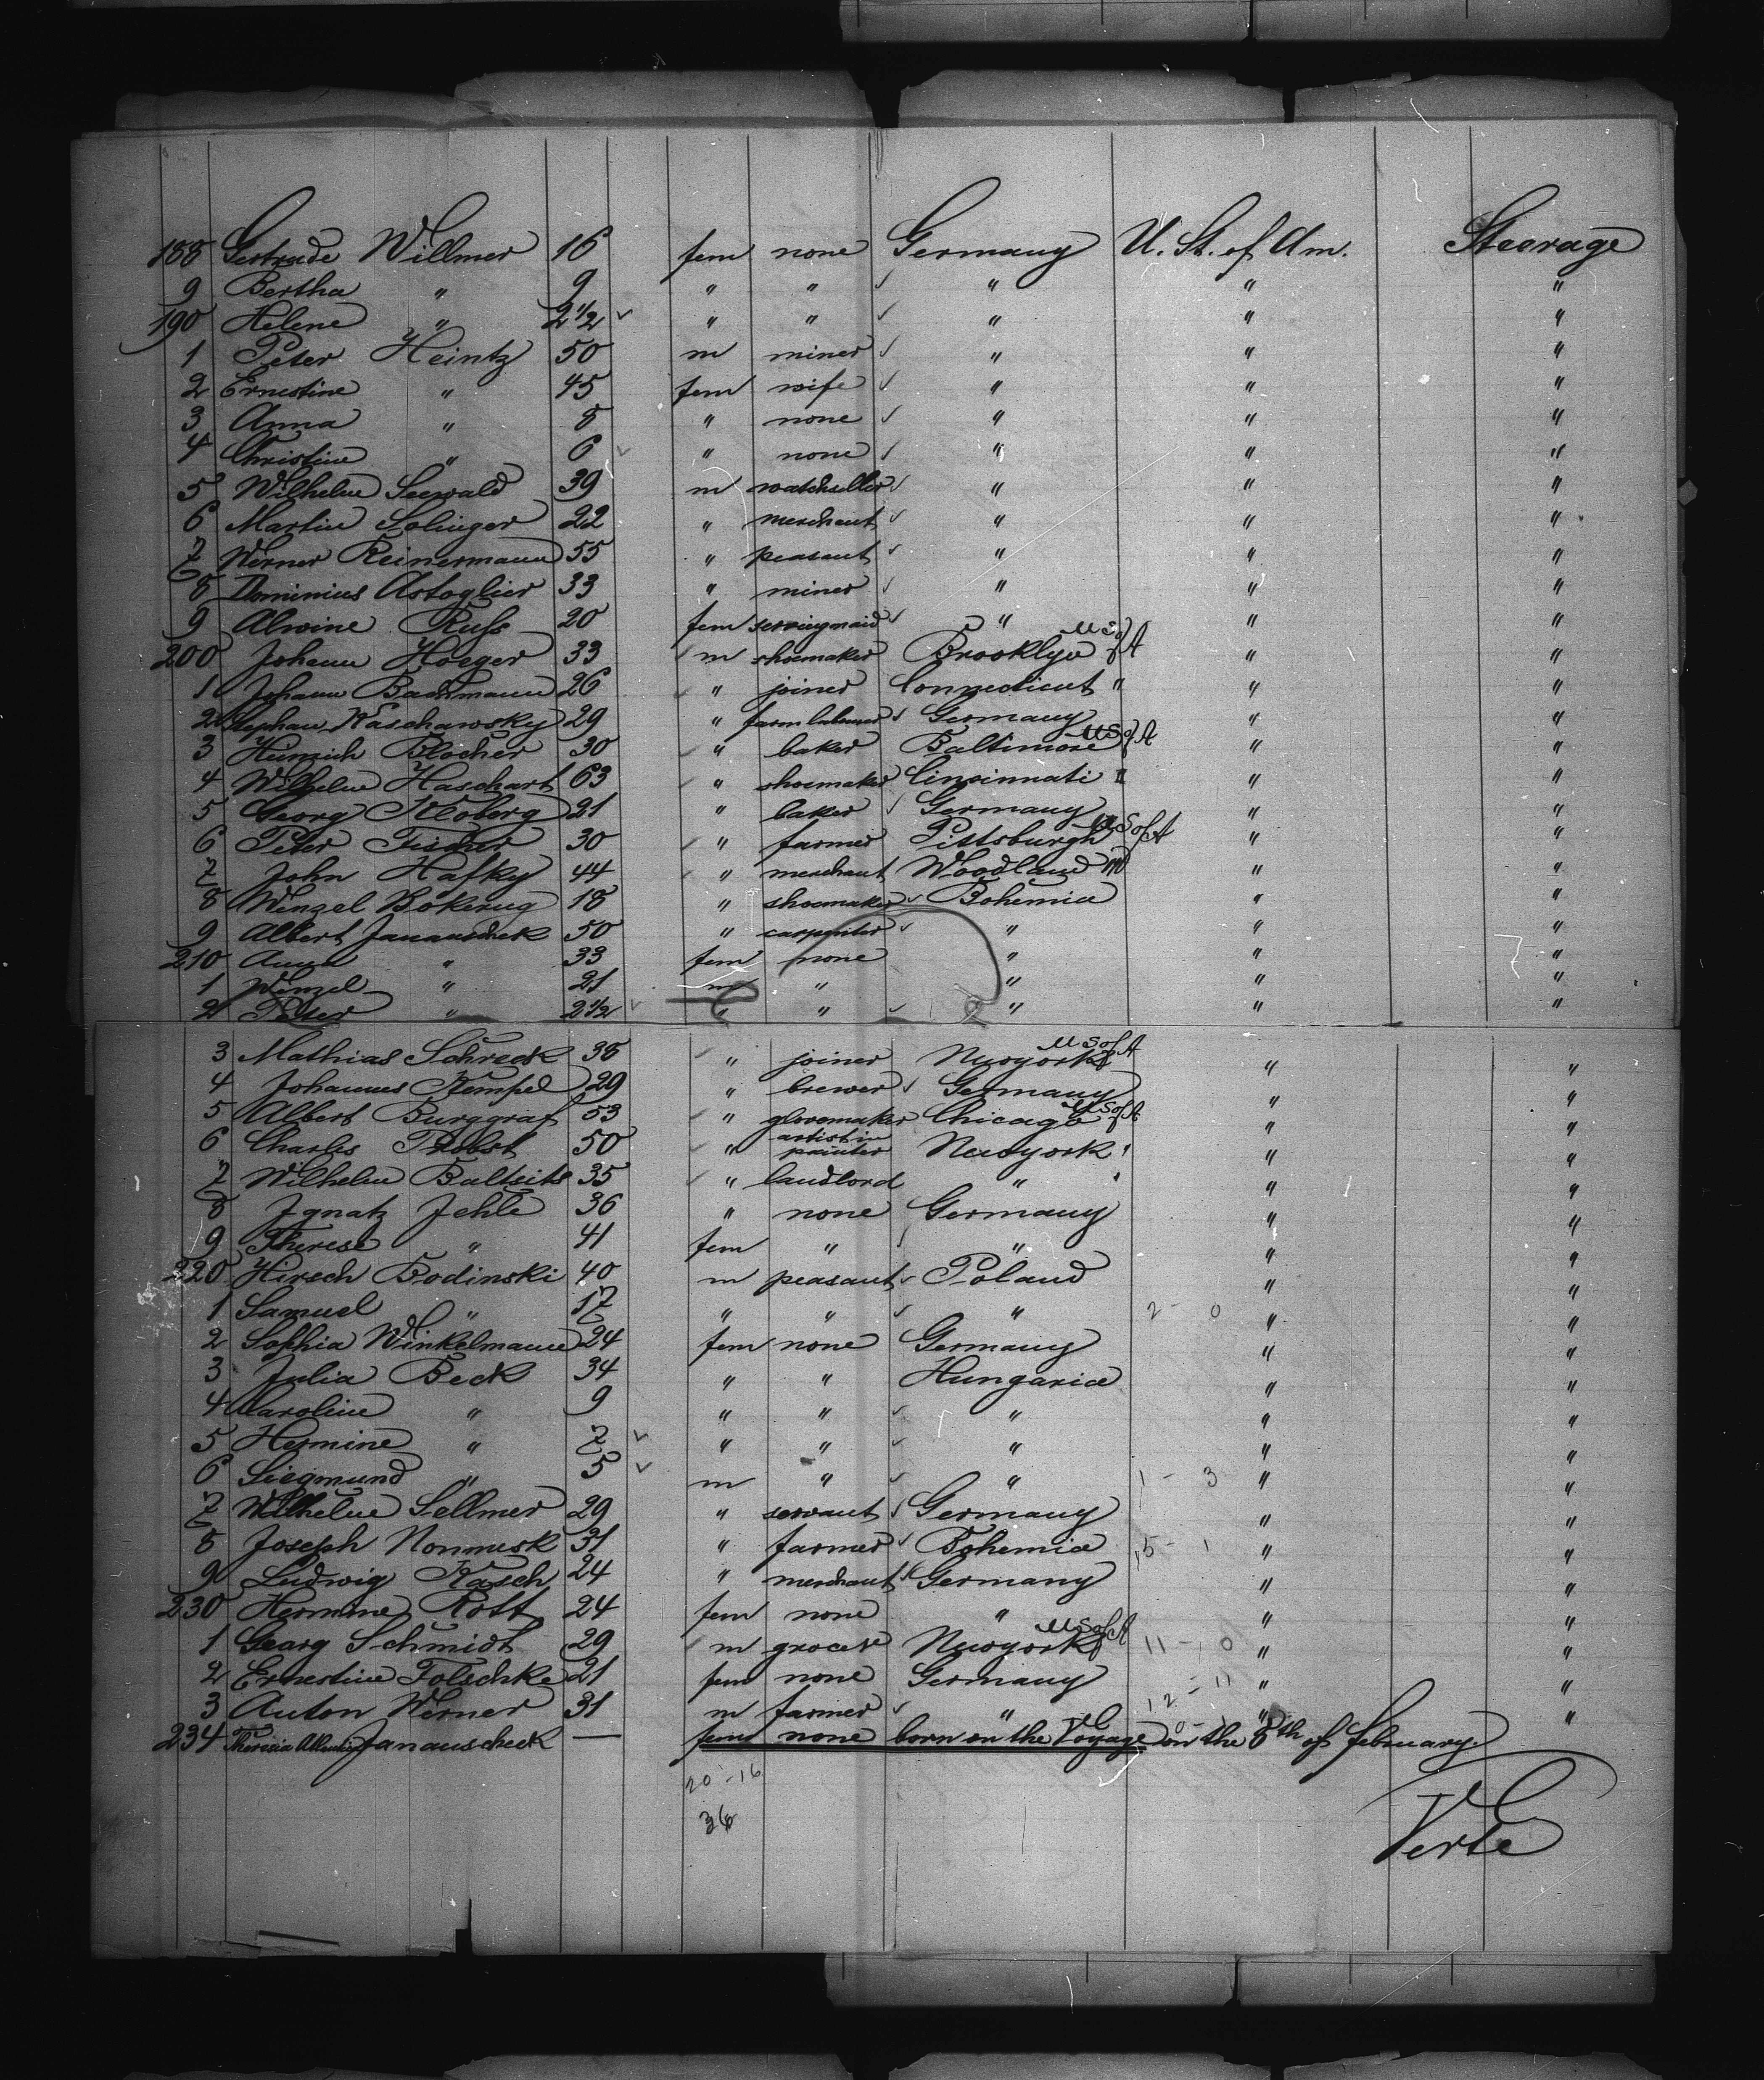 188 Gertrude Willmer 16 fem none Germany U. St. of Am. Steerage
9 Bertha " 9 " " " " "
190 Helene " 2 1/2 " " " " "
1 Peter Heintz 50 m miner " " "
2 Ernestine " 45 fem wife " " "
3 Anna " 8 " none " " "
4 Christine " 6 " none " " "
5 Wilhelm Seewald 39 m watchseller " " "
6 Martin Solinger 22 " merchant " " "
7 Werner Reinermann 55 " peasant " " "
8 Dominius Astoglier 33 " miner " " "
9 Alwine Rufs 20 fem servingmaid " " "
200 Johann Hoeger 33 m shoemaker Brooklyn U S of A " "
1 Johann Bachmann 26 " joiner Connecticut " " "
2 Stephan Kaschawsky 29 " farm labourer Germany " "
3 Heinrich Blocher 30 " baker Baltimore U S of A " "
4 Wilhelm Haschart 63 " shoemaker Cincinnati " " "
5 Georg Kloberg 21 " baker Germany " "
6 Peter Fischer 30 " farmer Pittsburgh U S of A " "
7 John Hafky 44 " merchant Woodland " "
8 Wenzel 18 " shoemaker Bohemia " "
9 Albert Janauscheck 50 " carpenter " " "
210 Anna " 33 fem none " " "
1 Wenzel " 21 m " " " "
2 Peter " 2 1/2 " " " " "
3 Mathias Schreck 38 " joiner Newyork U S of A " "
4 Johannes Kempel 29 " brewer Germany " "
5 Albert Burggraf 53 " glovemaker Chicago U S of A " "
6 Charles Probst 50 " artist in painter Newyork " " "
7 Wilhelm Baltsits 35 " landlord " " " "
8 Ignatz Jehle 36 " none Germany " "
9 Therese " 41 fem " " " "
220 Hirsch Bodinski 40 m peasant Poland " "
1 Samuel " 17 " " " 2 - 0 " "
2 Sophia Winkelmann 24 fem none Germany " "
3 Julia Beck 34 " " Hungaria " "
4 Caroline " 9 " " " " "
5 Hermine " 7 " " " " "
6 Siegmund " 5 m " " 1 - 3 " "
7 Wilhelm Sellmer 29 " servant Germany " "
8 Joseph Nommesk 31 " farmer Bohemia 15 - 1 " "
9 Ludwig Kasch 24 " merchant Germany " "
230 Hermine Rott 24 fem none " " "
1 Georg Schmidt 29 m grocer Newyork U S of A 11 - 0 " "
2 Ernestine Folschke 21 fem none Germany " "
3 Anton Werner 31 m farmer " 12 - 11 " "
234 Theresia Janauscheck — fem none born on the Voyage on the 8th of february.
20 - 16
36
Verte